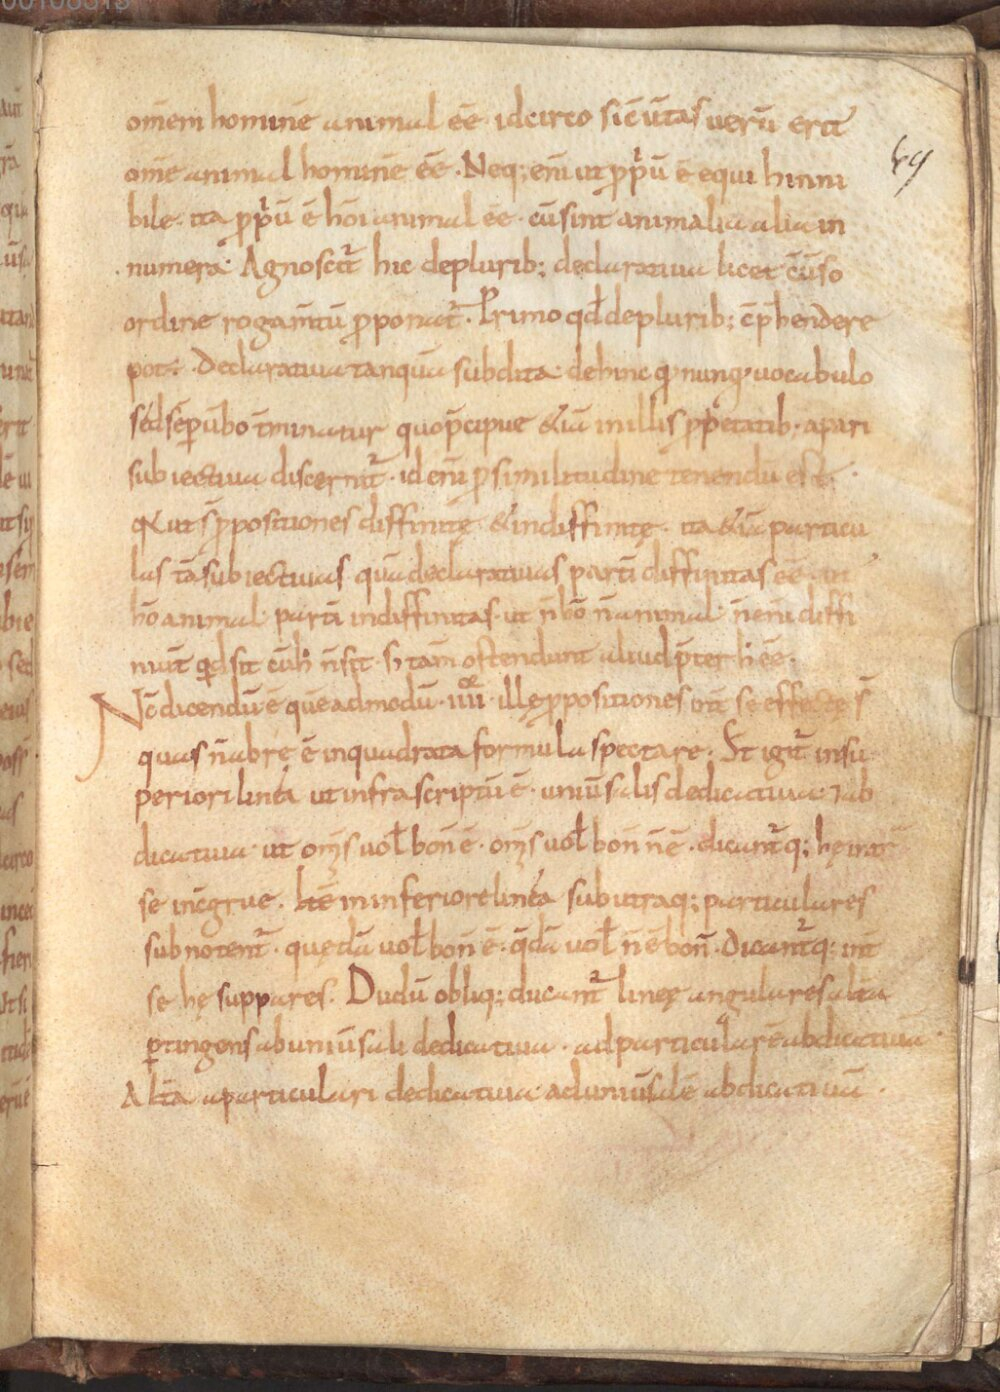 00108513
om̄em hominē animal ēē · idcirco sic̄ ūtas uerū erit
om̄e animal hominē ēē · Neq; eni ut ꝓpⁱū ē equi hinni
bile · ita ꝓpⁱū ē hōi animal ēē · cū sint animalia alia in
numera · Agnoscit̄ hic de plurib; declaratiua licet c̄ūso
ordine rogam̄tū ꝓponat̄ · Primo qđ de plurib; c̄p̄hendere
pot · Declaratiua tanquā subdita · dehinc qᵈ nunq̄ uocabulo
sed sēp ūbo t̄minatur quo p̄cipue &iā in illis ꝓp̄etatib; apari
subiectiua discernit̄ · id eni ꝑ similitudinē tenendū est ·
qđ ut s̄ ꝓpositiones diffinitę & indiffinitę · ita &iā particu
las tā subiectiuas quā declaratiuas partī diffinitas ēē · ut
hō animal · partī indiffinitas · ut n̄ hō n̄ animal · n̄ eni diffi
niut̄ qđ sit cūh n̄ sit · s; tam̄ ostendunt aliud p̄ter h ēē ·
Nc̄ dicendū ē quēadmodū · iiii · illę ꝓpositiones int̄ se effectę s̄
quas n̄ abrę ē in quadrata formula spectare · St̄ igit̄ in su
periori linea ut infra scriptū ē · uniūsalis dedicatiua · 7 ab
dicatiua · ut om̄s uoł bon̄ ē · om̄s uoł bon̄ n̄ ē · dicant̄q; hę int̄
se inc̄grue · Itē in inferiore linea sub utraq; particulares
subnotent̄ · quędā uoł bon̄ ē · q̄dā uoł n̄ ē bon̄ · Dicant̄q; int̄
se hę suppares · Dudū obliq; ducant̄ lineę angulares alt̄a
ꝑtingens ab uniūsali dedicatiua · ad particularē abdicatiuā ·
Alt̄a a particulari dedicatiua ad uniūsalē abdicatiuā ·